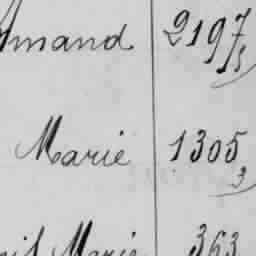 mand 2197
Marie 1305
3
Marie 363